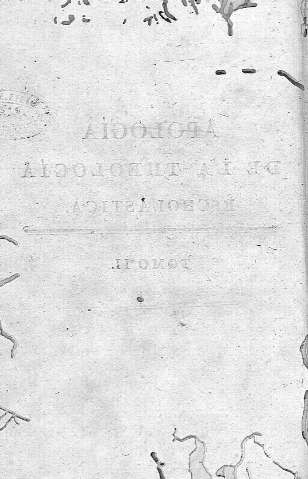 APOLOGÍA
DE LA THEOLOGÍA
ESCHOLASTICA
TOMO II.